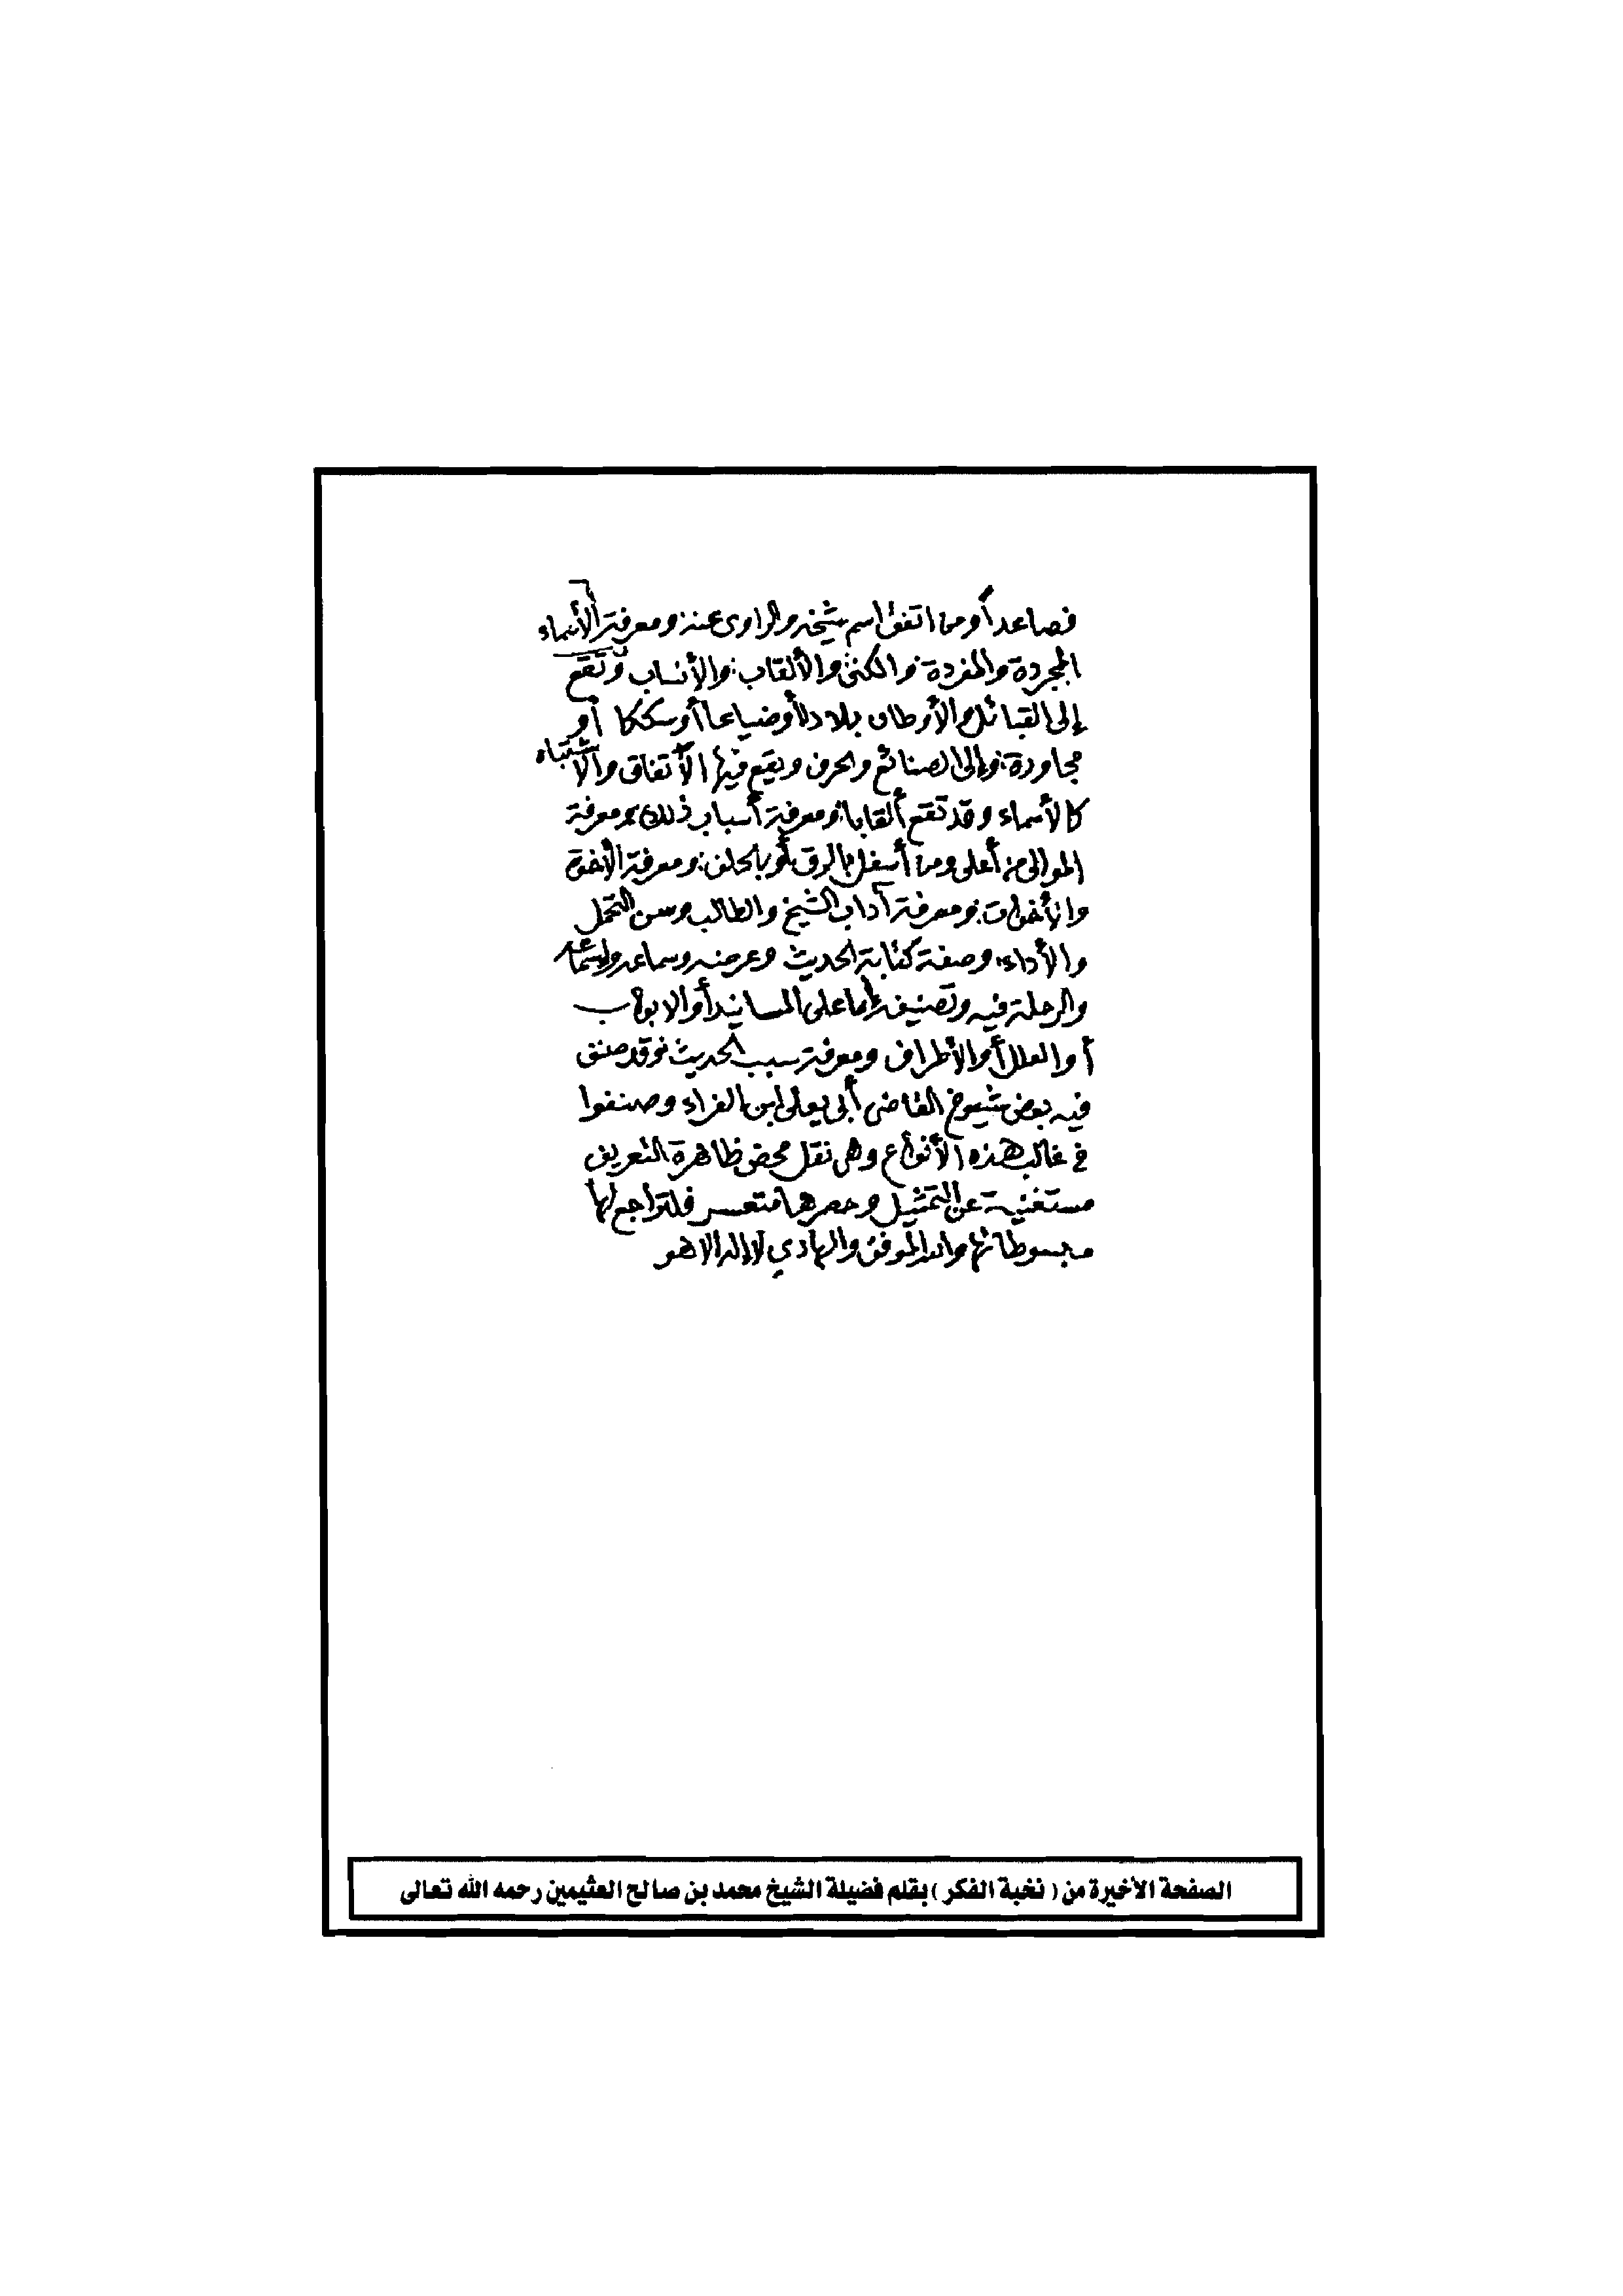 فصاعداً أو من اتفق اسم شيخه والراوي عنه ومعرفة الأسماء
المجردة والمفردة والكنى والألقاب والأنساب وتقع
إلى القبائل والأوطان بلاداً أو ضياعاً أو سككا أو
مجاورة وإلى الصنائع والحرف ويقع فيها الاتفاق والاشتباه
كالأسماء وقد تقع ألقابا ومعرفة أسباب ذلك ومعرفة
الموالي من أعلى ومن أسفل بالرق أو بالحلف ومعرفة الأخوة
والأخوات ومعرفة آداب الشيخ والطالب وسن التحمل
والأداء وصفة كتابة الحديث وعرضه وسماعه وإسماعه
والرحلة فيه وتصنيفه إما على المسانيد أو الابواب
أو العلل أو الأطراف ومعرفة سبب الحديث وقد صنف
فيه بعض شيوخ القاضي أبي يعلى ابن الفراء وصنفوا
في غالب هذه الأنواع وهي نقل محض ظاهرة التعريف
مستغنية عن التمثيل وحصرها متعسر فلتراجع لها
مبسوطاتها والله الموفق والهادي لا إله الا هو
الصفحة الأخيرة من ( نخبة الفكر ) بقلم فضيلة الشيخ محمد بن صالح العثيمين رحمه الله تعالى